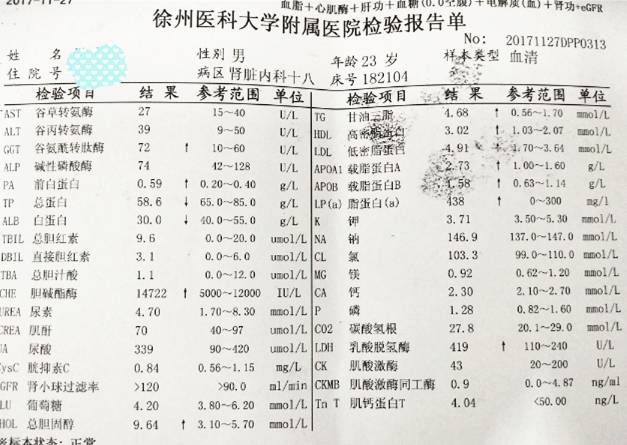 2017-11-27
血脂+心肌酶+肝功+血糖(0.0空腹)+电解质(血)+肾功+eGFR
徐州医科大学附属医院检验报告单
No: 20171127DPP0313
姓 名 性别 男 年龄 23 岁 样本类型 血清
住 院 号 病区 肾脏内科十八 床号 182104
检验项目 结 果 参考范围 单位 检验项目 结 果 参考范围 单位
AST 谷草转氨酶 27 15~40 U/L TG 甘油三脂 4.68 ↑ 0.56~1.70 mmol/L
ALT 谷丙转氨酶 39 9~50 U/L HDL 高密脂蛋白 3.02 ↑ 1.03~2.07 mmol/L
GGT 谷氨酰转肽酶 72 ↑ 10~60 U/L LDL 低密脂蛋白 4.91 ↑ 1.70~3.64 mmol/L
ALP 碱性磷酸酶 74 42~128 U/L APOA1 载脂蛋白A 2.73 ↑ 1.00~1.60 g/L
PA 前白蛋白 0.59 ↑ 0.20~0.40 g/L APOB 载脂蛋白B 1.58 ↑ 0.63~1.14 g/L
TP 总蛋白 58.6 ↓ 65.0~85.0 g/L LP(a) 脂蛋白(a) 438 ↑ 0~300 mg/l
ALB 白蛋白 30.0 ↓ 40.0~55.0 g/L K 钾 3.71 3.50~5.30 mmol/L
TBIL 总胆红素 9.6 0.0~20.0 umol/L NA 钠 146.9 137.0~147.0 mmol/L
DBIL 直接胆红素 3.1 0.0~6.0 umol/L CL 氯 103.3 99.0~110.0 mmol/L
TBA 总胆汁酸 1.1 0.0~12.0 umol/L MG 镁 0.92 0.62~1.20 mmol/L
CHE 胆碱酯酶 14722 ↑ 5000~12000 IU/L CA 钙 2.30 2.10~2.70 mmol/L
UREA 尿素 4.70 1.70~8.30 mmol/L P 磷 1.28 0.82~1.60 mmol/L
CREA 肌酐 70 40~97 umol/L CO2 碳酸氢根 27.8 20.1~29.0 mmol/L
UA 尿酸 339 90~420 umol/L LDH 乳酸脱氢酶 419 ↑ 110~240 U/L
CysC 胱抑素C 0.84 0.56~1.15 mg/L CK 肌酸激酶 43 20~200 U/L
GFR 肾小球过滤率 >120 >90.0 ml/min CKMB 肌酸激酶同工酶 0.9 0.0~4.87 ng/ml
LU 葡萄糖 4.20 3.80~6.20 mmol/L Tn T 肌钙蛋白T 4.04 <50.00 ng/L
HOL 总胆固醇 9.64 ↑ 3.10~5.70 mmol/L
标本状态: 正常